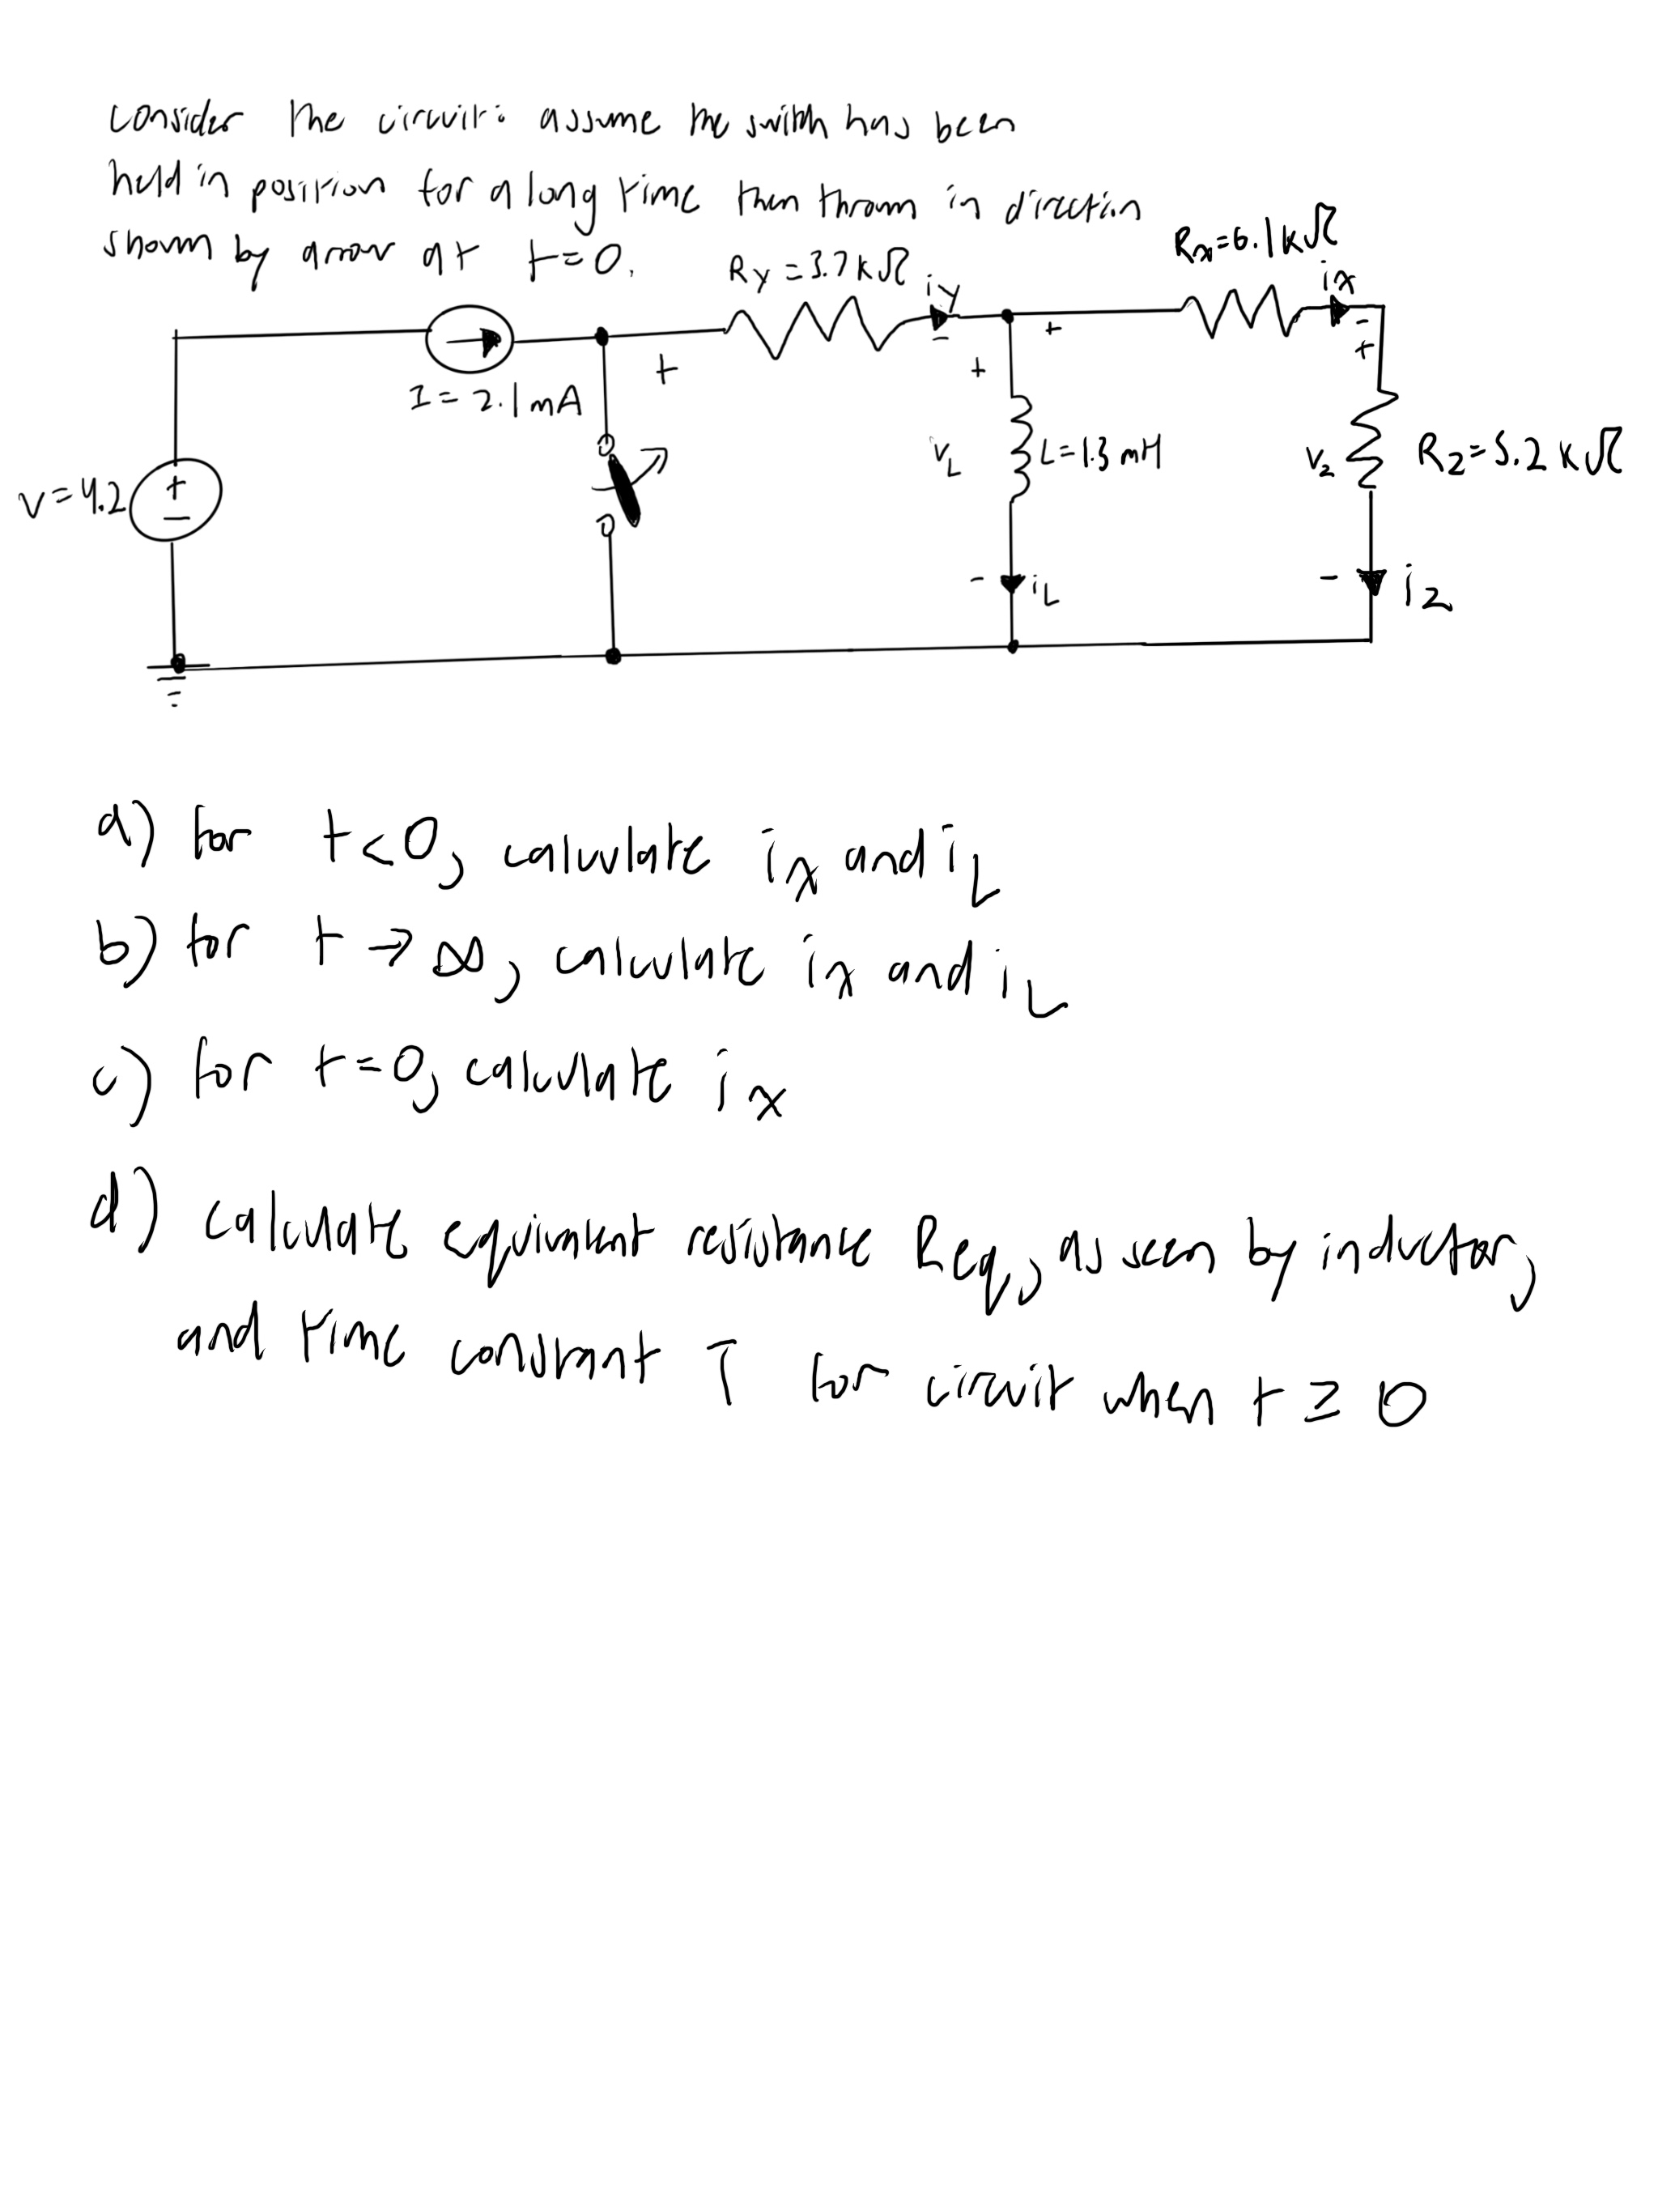 consider the circuit: assume the switch has been
held in position for a long time then thrown in direction
shown by arrow at t=0.
Rx=6.1kΩ
Ry=3.7kΩ
iy
ix
+
-
+
-
+
+
I=2.1mA
V=4.2
+
-
VL
L=1.3 mH
V2
R2=5.2kΩ
-
iL
-
i2
a) for t<0, calculate ix and iL
b) for t→∞, calculate ix and iL
c) for t=0, calculate ix
d) calculate equivalent resistance Req, as seen by inductor,
and time constant τ for circuit when t≥0